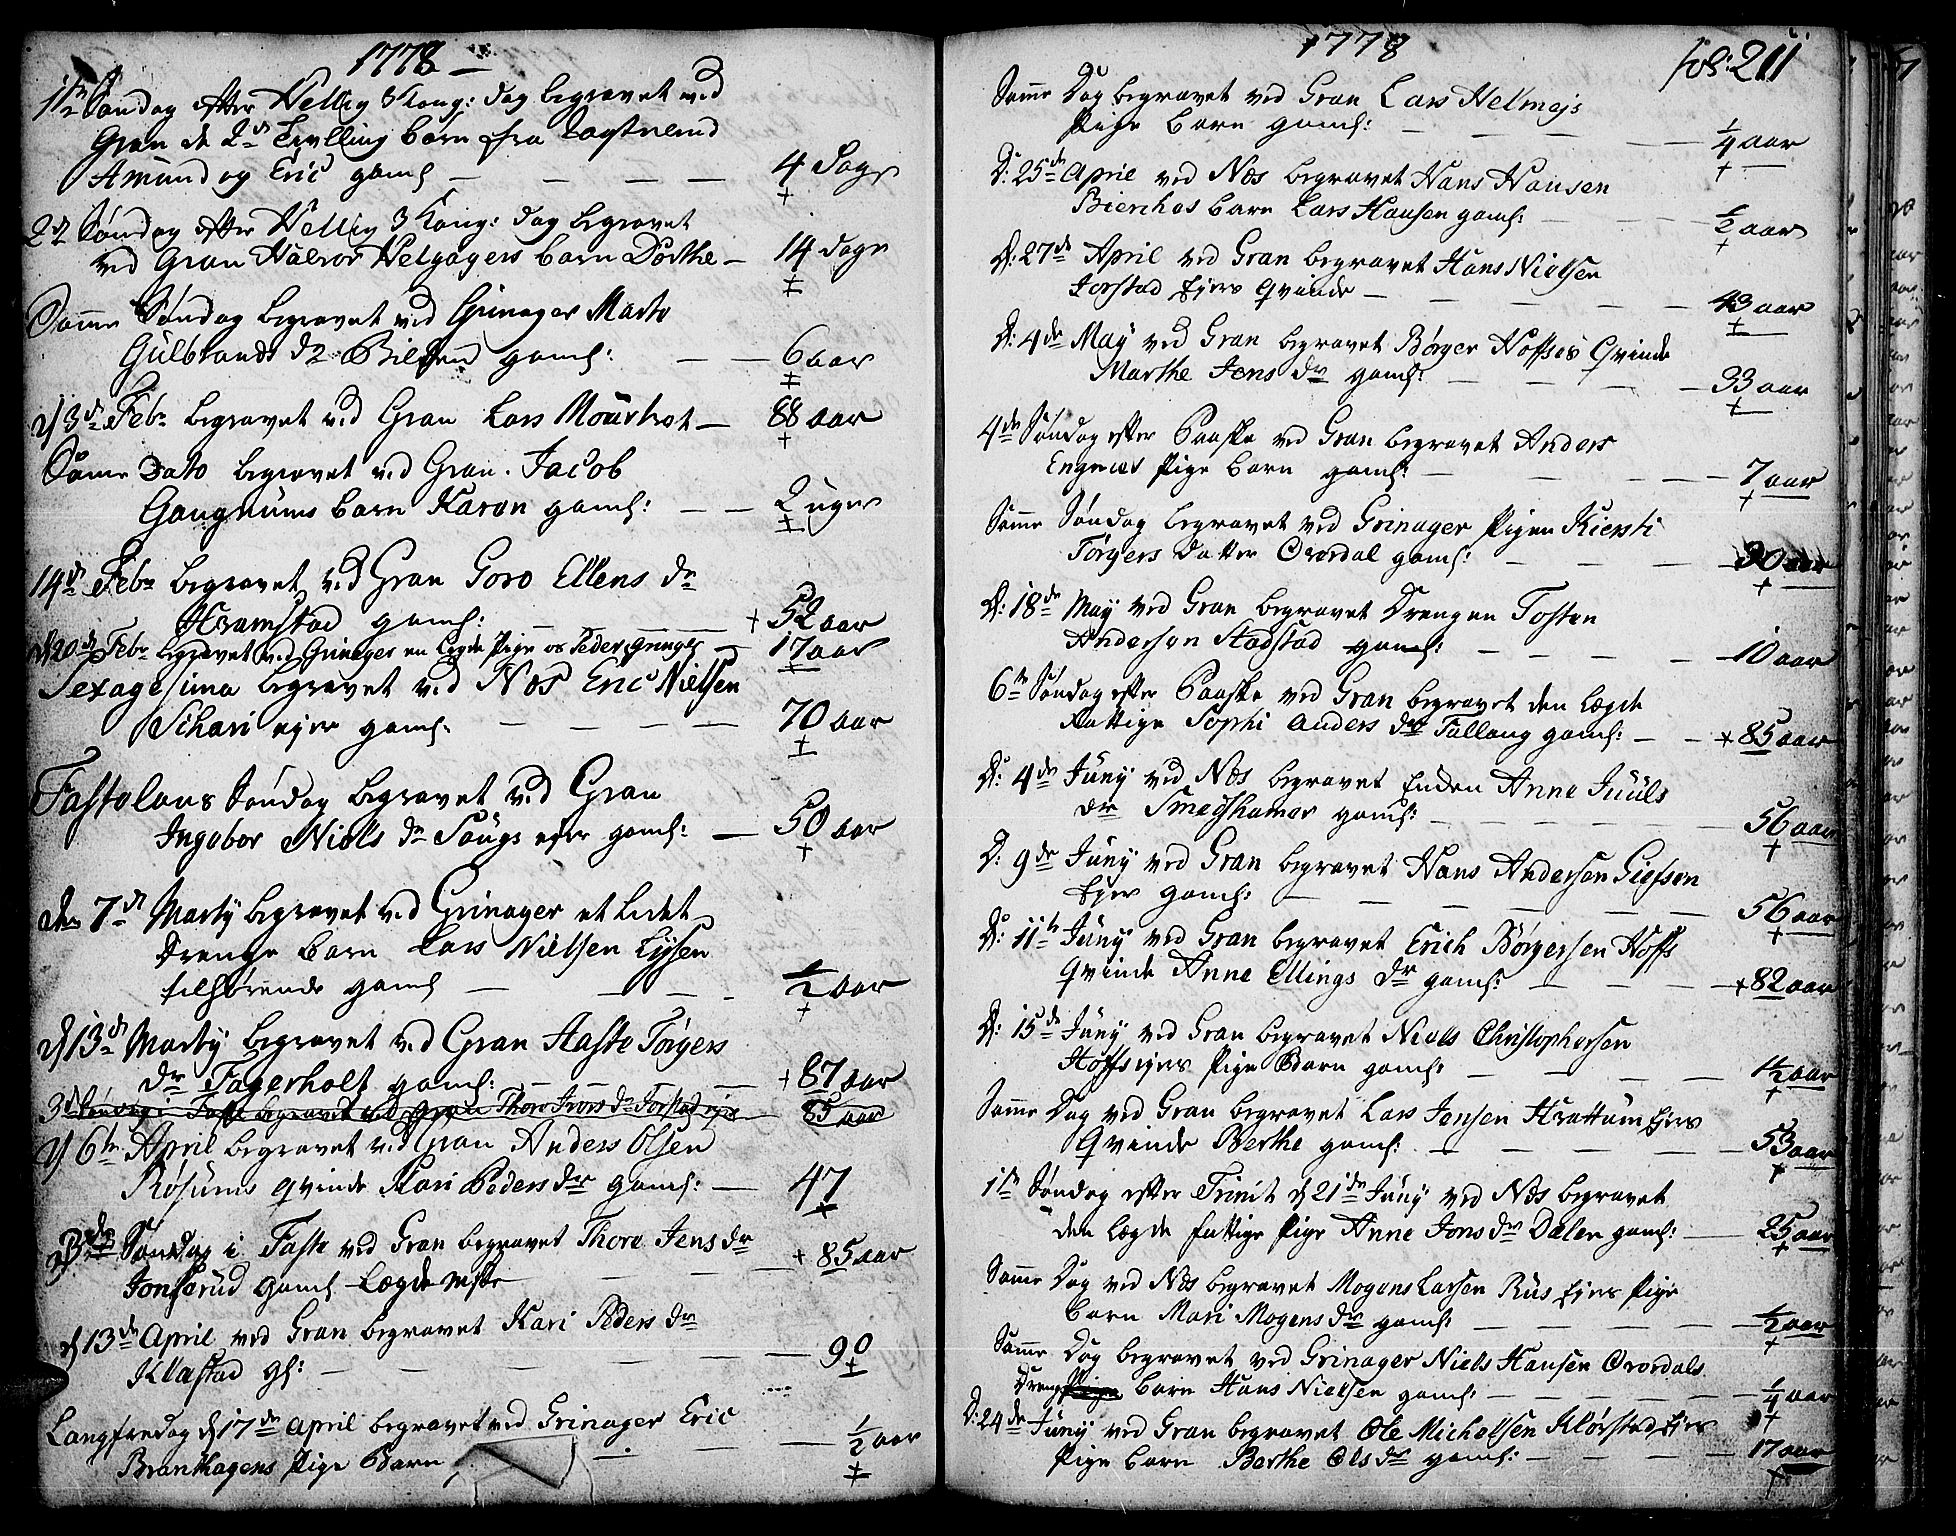 1778
1ste Søndag efter Hellig 3 Kong: dag begravet ved
Gran de 2de Tvilling børn fra
Amund og Eric gaml 4 Dage
2d Søndag efter Hellig 3 Kong: dag begravet
ved Gran Halvor Helgagers barn Dorthe 14 dage
Samme Søndag begravet ved Grinager Marte
Gulbrands dr Bilden gaml: 6 aar
d 3de Febr begravet ved Gran Lars 88 aar
Same Dato begravet ved Gran Jacob
Gangnums barn Karen gaml: 2 uger
14de Febr begravet ved Gran Goro Ellens dr
Hramstad gaml: 52 aar
d 20de Febr begravet ved Grinager en Legde Pige os Peder Grinager 17 aar
Sexagesima begravet ved Næs Eric Nielsen
Schari ejer gaml: 70 aar
Fastelavns Søndag begravet ved Gran
Ingebor Niels dr Saugs ejer gaml: 50 aar
den 7de Marty begravet ved Grinager et lidet
Drenge barn Lars Nielsen Lysen
tilhørende gaml 1/2 aar
d 13de Marty begravet ved Gran Aaste Torgers
dr Fagerholt gaml: 87 aar
3de Søndag i Faste begravet ved Gran Thore Ivers dr 85 aar
d 6te April begravet ved Gran Anders Olsen
Røsums qvinde Kari Peders dr gaml: 47
3de Søndag i Faste ved Gran begravet Thore Jens dr
Jonserud gaml Legde 85 aar
d 13de April ved Gran begravet Kari Peders dr
Klastad gl: 90
Langfredag d 17de april begravet ved Grinager Eric
Branthagens Pige Barn 1/2 aar
1778 fol: 211
Samme Dag begravet ved Gran Lars Helmejs
Pige barn gaml: 1/4 aar
D: 25de April ved Næs begravet Hans Hansen
Bierkes barn Lars Hansen gaml: 1/2 aar
D: 27de April ved Gran begravet Hans Nielsen
Jorstad Ejers Qvinde 43 aar
D: 4de May ved Gran begravet Børger Hoffses Qvinde
Marthe Jens dr gaml: 33 aar
4de Søndag efter Paaske ved Gran begravet Anders
Engnæs Pige barn gaml: 7 aar
Samme Søndag begravet ved Grinager Pigen Kiersti
Torgers Datter Ovrdal gaml: 30 aar
D: 18de May ved Gran begravet Drengen Tosten
Andersen Stadstad gaml: 10 aar
6te Søndag efter Paaske ved Gran begravet den Legde
Fattige Sophi Anders dr Tallang gaml: 85 aar
D: 4de Juny ved Næs begravet Enken Anne Juuls
dr Smedshamar gaml: 56 aar
D: 9de Juny ved Gran begravet Hans Andersen Giefsen
Ejer gaml: 56 aar
D: 11te Juny ved Gran begravet Erich Børgersen Hoffs
Qvinde Anne Ellings dr gaml: 82 aar
D: 15de Juny ved Gran begravet Niels Christophersen
Hoffs ejers Pige Barn gaml: 1 1/2 aar
Samme Dag ved Gran begravet Lars Jensen Hrattum Ejers
Qvinde Berthe gaml: 53 aar
1ste Søndag efter Trinit d 21de Juny ved Næs begravet
den Legde fattige Pige Anne Jons dr Dalen gaml: 25 aar
Samme Dag ved Næs begravet Mogens Larsen Rus Ejers Pige
barn Mari Mogens dr gaml: 1/2 aar
Samme Dag begravet ved Grinager Niels Hansen Ovrdals
Dreng Pige barn Hans Nielsen gaml: 1/4 aar
D: 24de Juny ved Gran begravet Ole Michelsen Klørstad Ejers
Pige barn Berthe Ols dr gaml: 17 aar